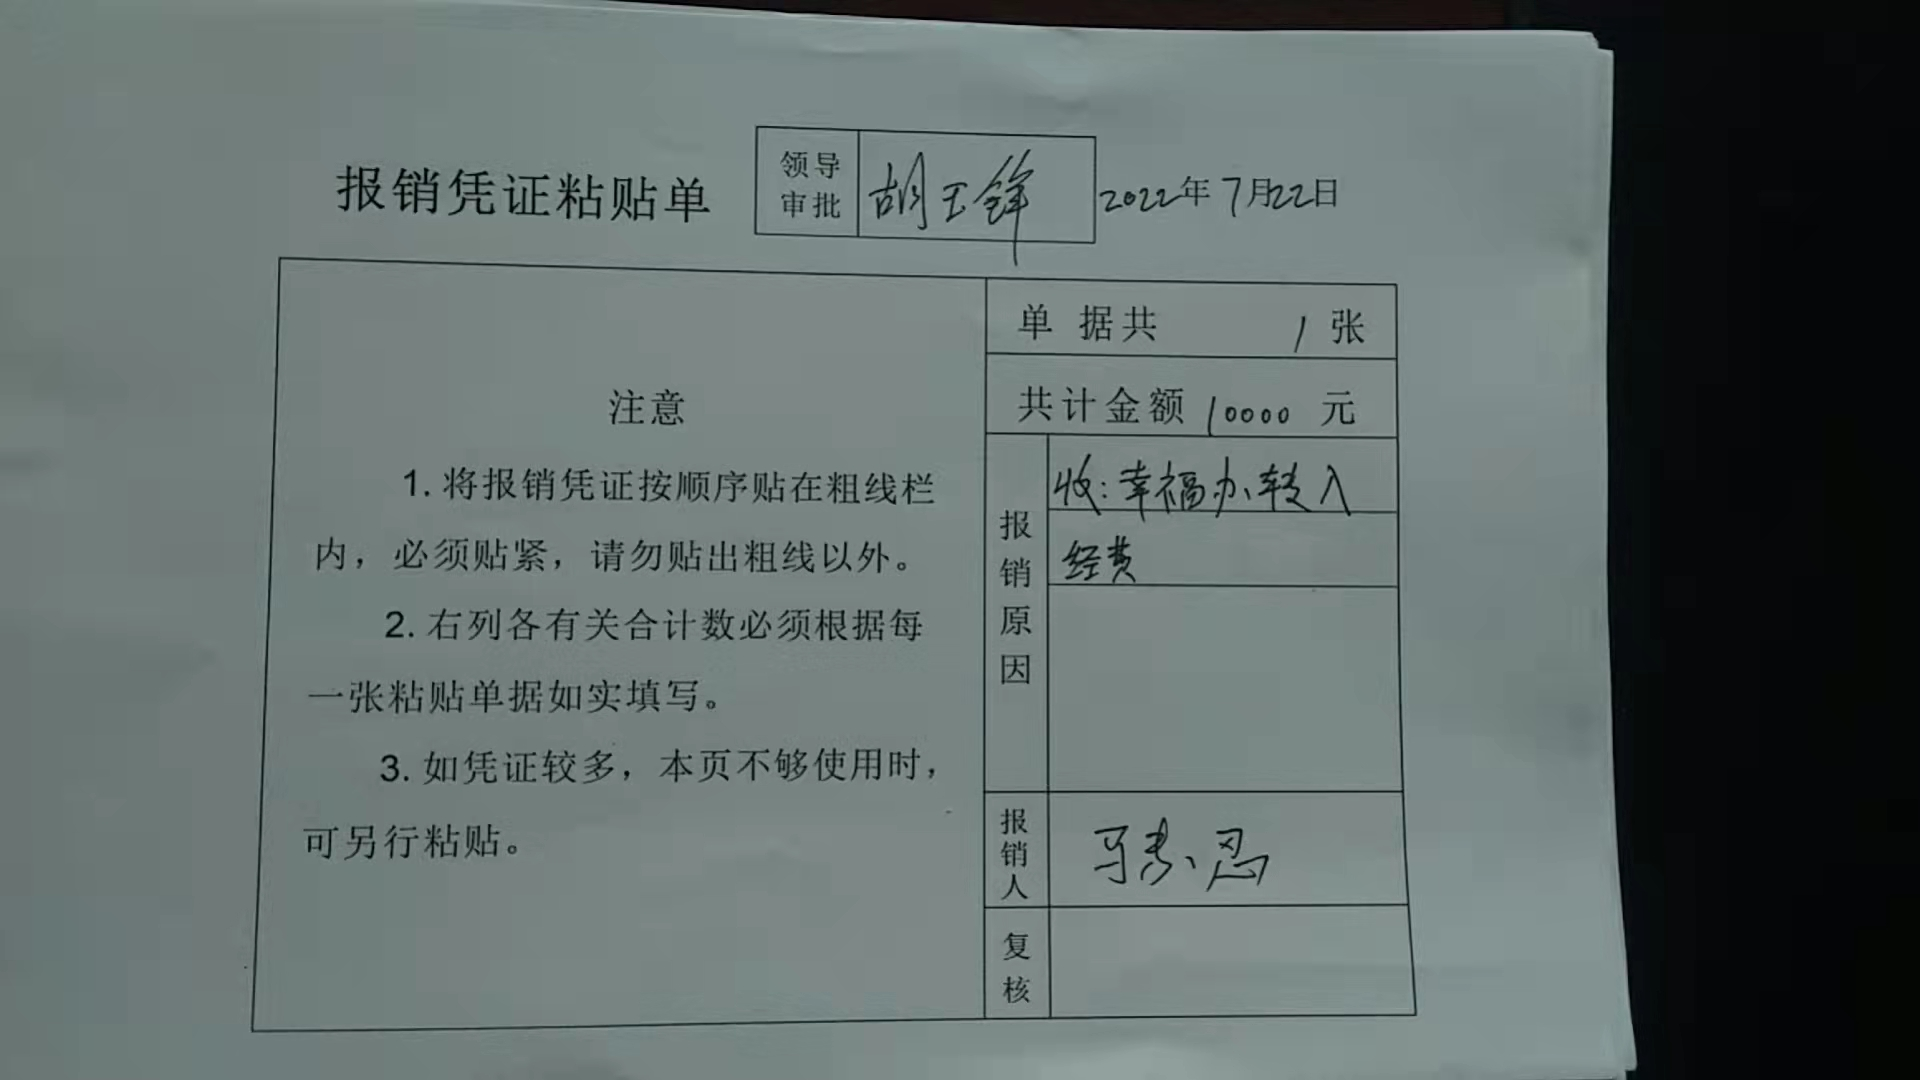 报销凭证粘贴单
领导审批 胡玉锋
2022年7月22日
注意
1. 将报销凭证按顺序贴在粗线栏
内，必须贴紧，请勿贴出粗线以外。
2. 右列各有关合计数必须根据每
一张粘贴单据如实填写。
3. 如凭证较多，本页不够使用时，
可另行粘贴。
单据共 1 张
共计金额 10000 元
报销原因
收：幸福办转入
经费
报销人
复核